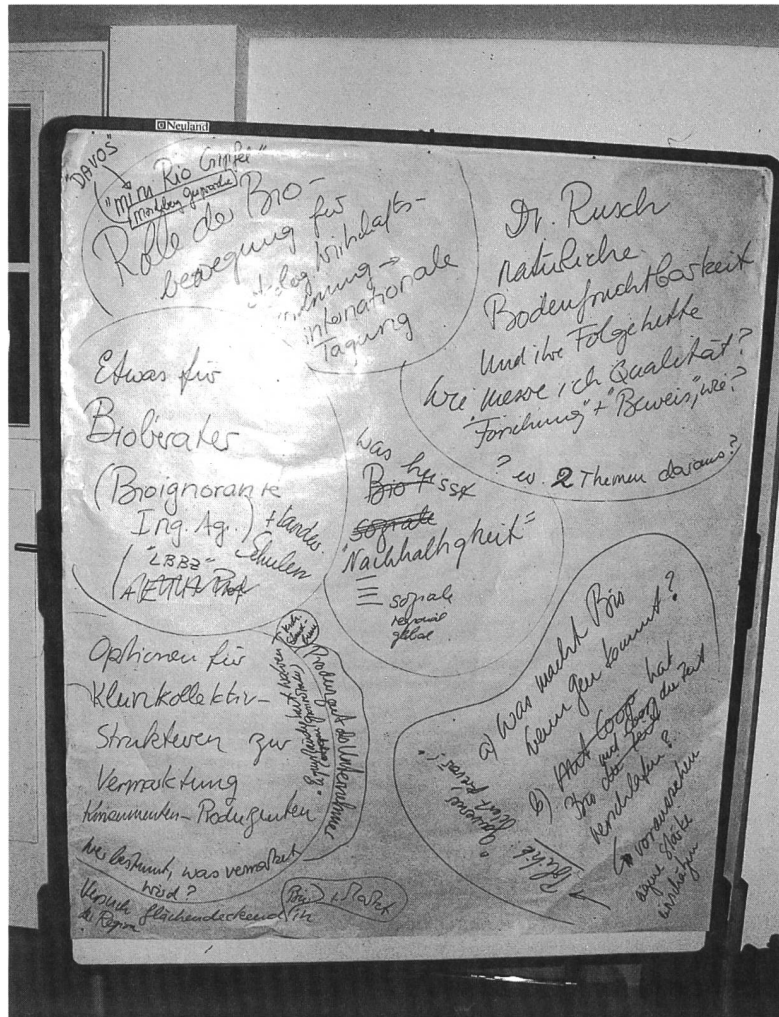 Neuland
"DAVOS"
"mini Rio Gipfel"
Rolle der Bio-
bewegung für
wirtschafts-
ordnung →
internationale
Tagung
Dr. Rusch
natürliche
Bodenfruchtbarkeit
und ihre
Wie messe ich Qualität?
"Forschung" + "Beweis", wie?
? ev. 2 Themen daraus?
Etwas für
Bioberater
(Bioignorante
Ing. Ag.) + Landw.
Schulen
"LBBZ"
was heisst
Bio +
soziale
"Nachhaltigkeit"
soziale
regional
global
Optionen für
Kleinkollektiv-
Strukturen zur
Vermarktung
Konsumenten-Produzenten
wer bestimmt, was vermarktet
wird?
Produzent als Unternehmer
Versuch flächendeckend in
der Region
Bio + Markt
a) Was macht Bio
wenn gen kommt?
b) Hat Coop hat
Bio die Zeit
verschlafen?
↳ voraussehen
eigene Stärke
einschätzen
Politik